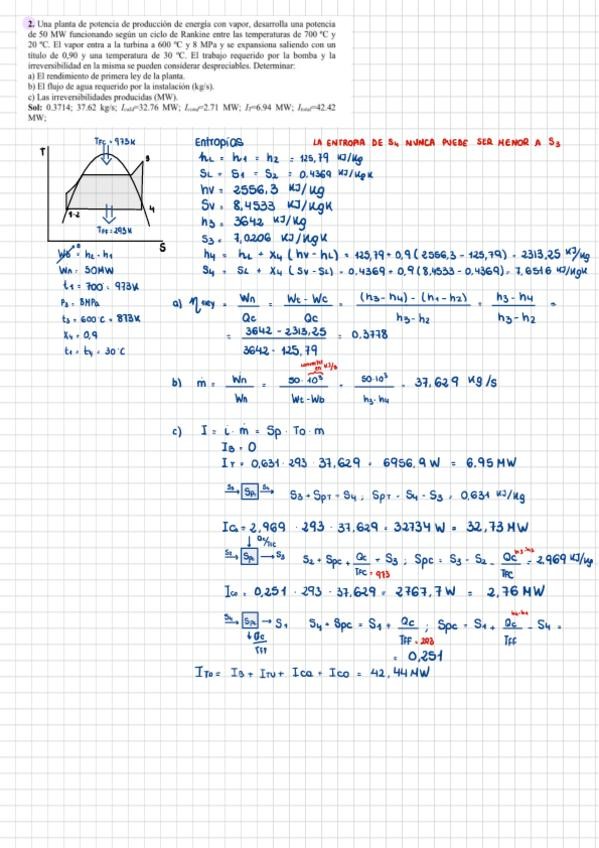 2. Una planta de potencia de producción de energía con vapor, desarrolla una potencia
de 50 MW funcionando según un ciclo de Rankine entre las temperaturas de 700 ºC y
20 ºC. El vapor entra a la turbina a 600 ºC y 8 MPa y se expansiona saliendo con un
título de 0,90 y una temperatura de 30 ºC. El trabajo requerido por la bomba y la
irreversibilidad en la misma se pueden considerar despreciables. Determinar:
a) El rendimiento de primera ley de la planta.
b) El flujo de agua requerido por la instalación (kg/s).
c) Las irreversibilidades producidas (MW).
Sol: 0.3714; 37.62 kg/s; =32.76 MW; =2.71 MW; =6.94 MW; =42.42
MW;
T
TFC = 973K
3
1-2
4
TFF = 293K
S
Wb = h2 - h1
Wn = 50MW
t1 = 700 = 973K
P3 = 8MPa
t3 = 600ºC = 873K
X4 = 0,9
t1 = t4 = 30ºC
Entropios
LA ENTROPIA DE S4 NUNCA PUEDE SER MENOR A S3
hL = h1 = h2 = 125,79 KJ/Kg
SL = S1 = S2 = 0.4369 KJ/KgK
hv = 2556,3 KJ/Kg
Sv = 8,4533 KJ/KgK
h3 = 3642 KJ/Kg
S3 = 7,0206 KJ/KgK
h4 = hL + X4 (hv - hL) = 125,79 + 0,9 (2556,3 - 125,79) = 2313,25 KJ/Kg
S4 = SL + X4 (Sv - SL) = 0.4369 + 0,9 (8,4533 - 0.4369) = 7,6516 KJ/KgK
a) η = Wn/Qc = Wt - Wc/Qc = (h3-h4) - (h1-h2)/h3-h2 = h3-h4/h3-h2 =
= 3642 - 2313,25/3642 - 125,79 = 0.3778
b) ṁ = Ẇn/Wn = 50·10³/Wt - Wb = 50·10³/h3-h4 = 37,629 Kg/s
c) I = i · ṁ = Sp · To · m
IB = 0
IT = 0,631 · 293 · 37,629 = 6956,9 W = 6.95 MW
S3 → Sp → S4 S3 + SPT = S4; SPT = S4 - S3 = 0,631 KJ/Kg
ICa = 2,969 · 293 · 37,629 = 32734 W = 32,73 MW
↓ Qc/TFC
S2 → Sp → S3 S2 + Spc + Qc/TFC = 973 = S3; Spc = S3 - S2 - Qc h3-h2/TFC = 2,969 KJ/Kg
ICo = 0,251 · 293 · 37,629 = 2767,7 W = 2,76 MW
S4 → Sp → S1 S4 + Spc = S1 + Qc/TFF = 293; Spc = S1 + Qc/TFF - S4 =
↓ Qc/TFF
= 0,251
ITo = IB + ITU + ICa + ICo = 42,44 MW